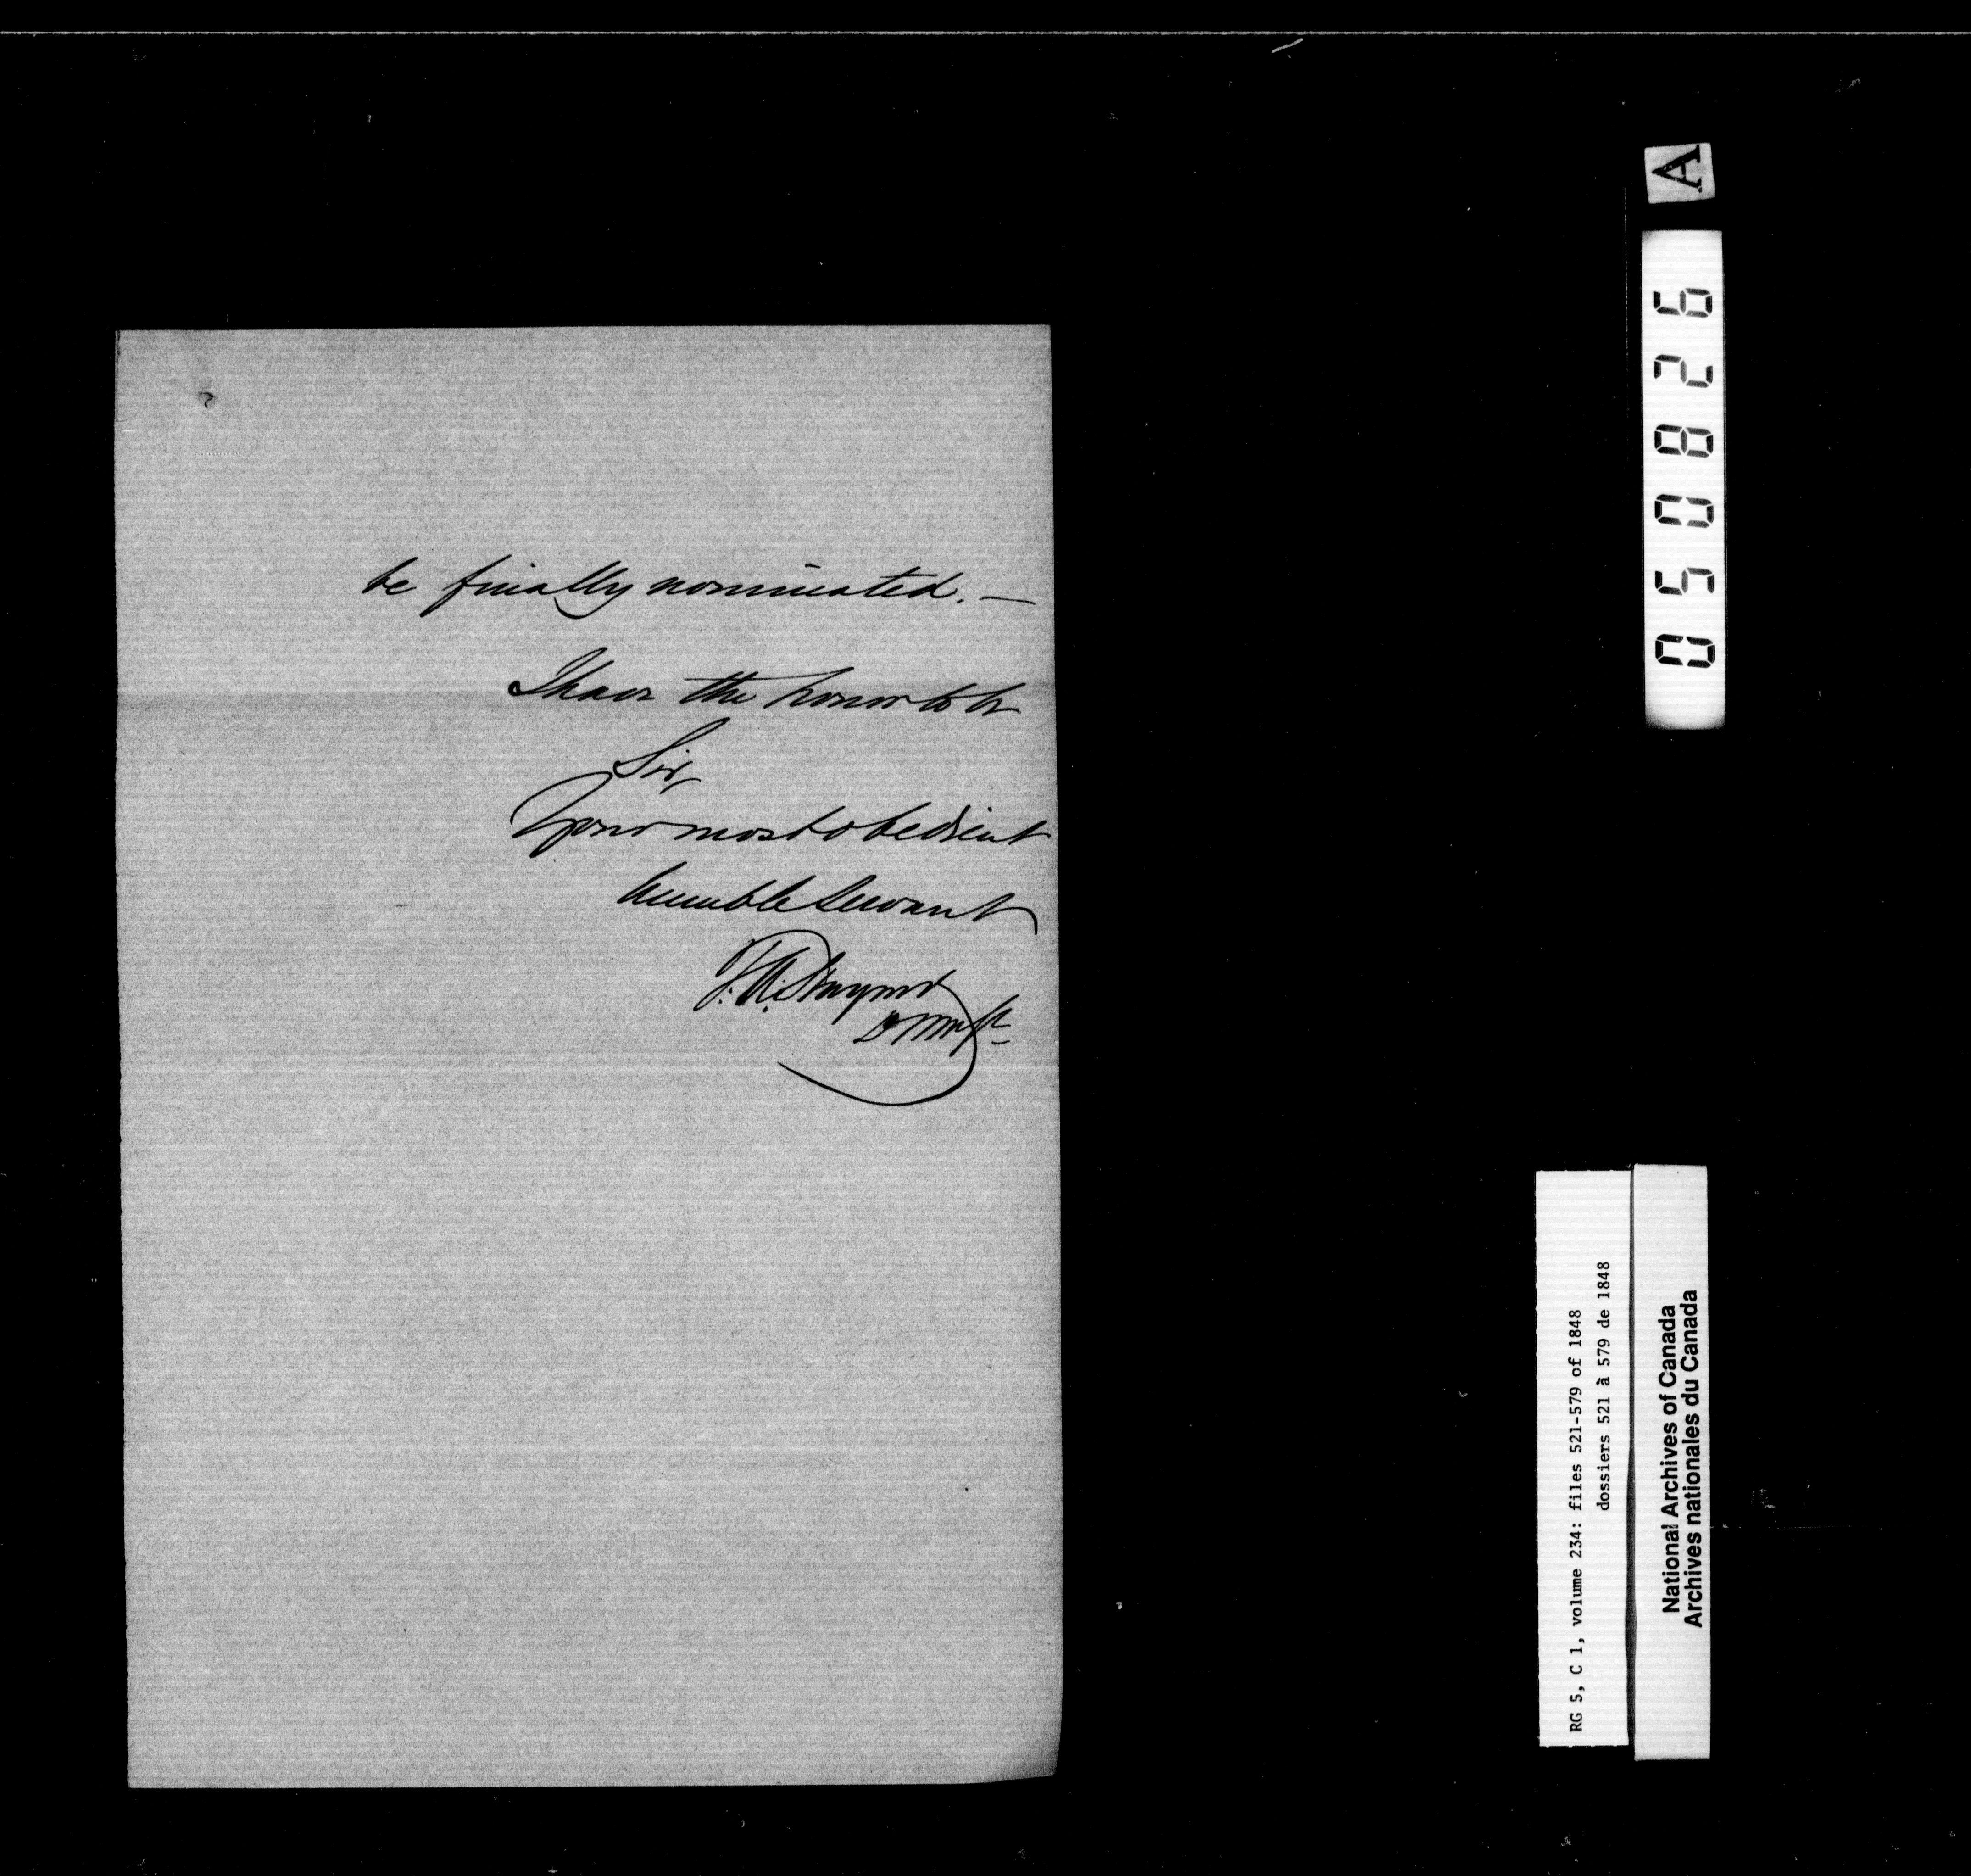 be finally nominated. —
I have the honor to be
Sir,
Your most obedient
humble servant
T. A. Stayner
A
050826
RG 5, C 1, volume 234: files 521-579 of 1848
dossiers 521 à 579 de 1848
National Archives of Canada
Archives nationales du Canada